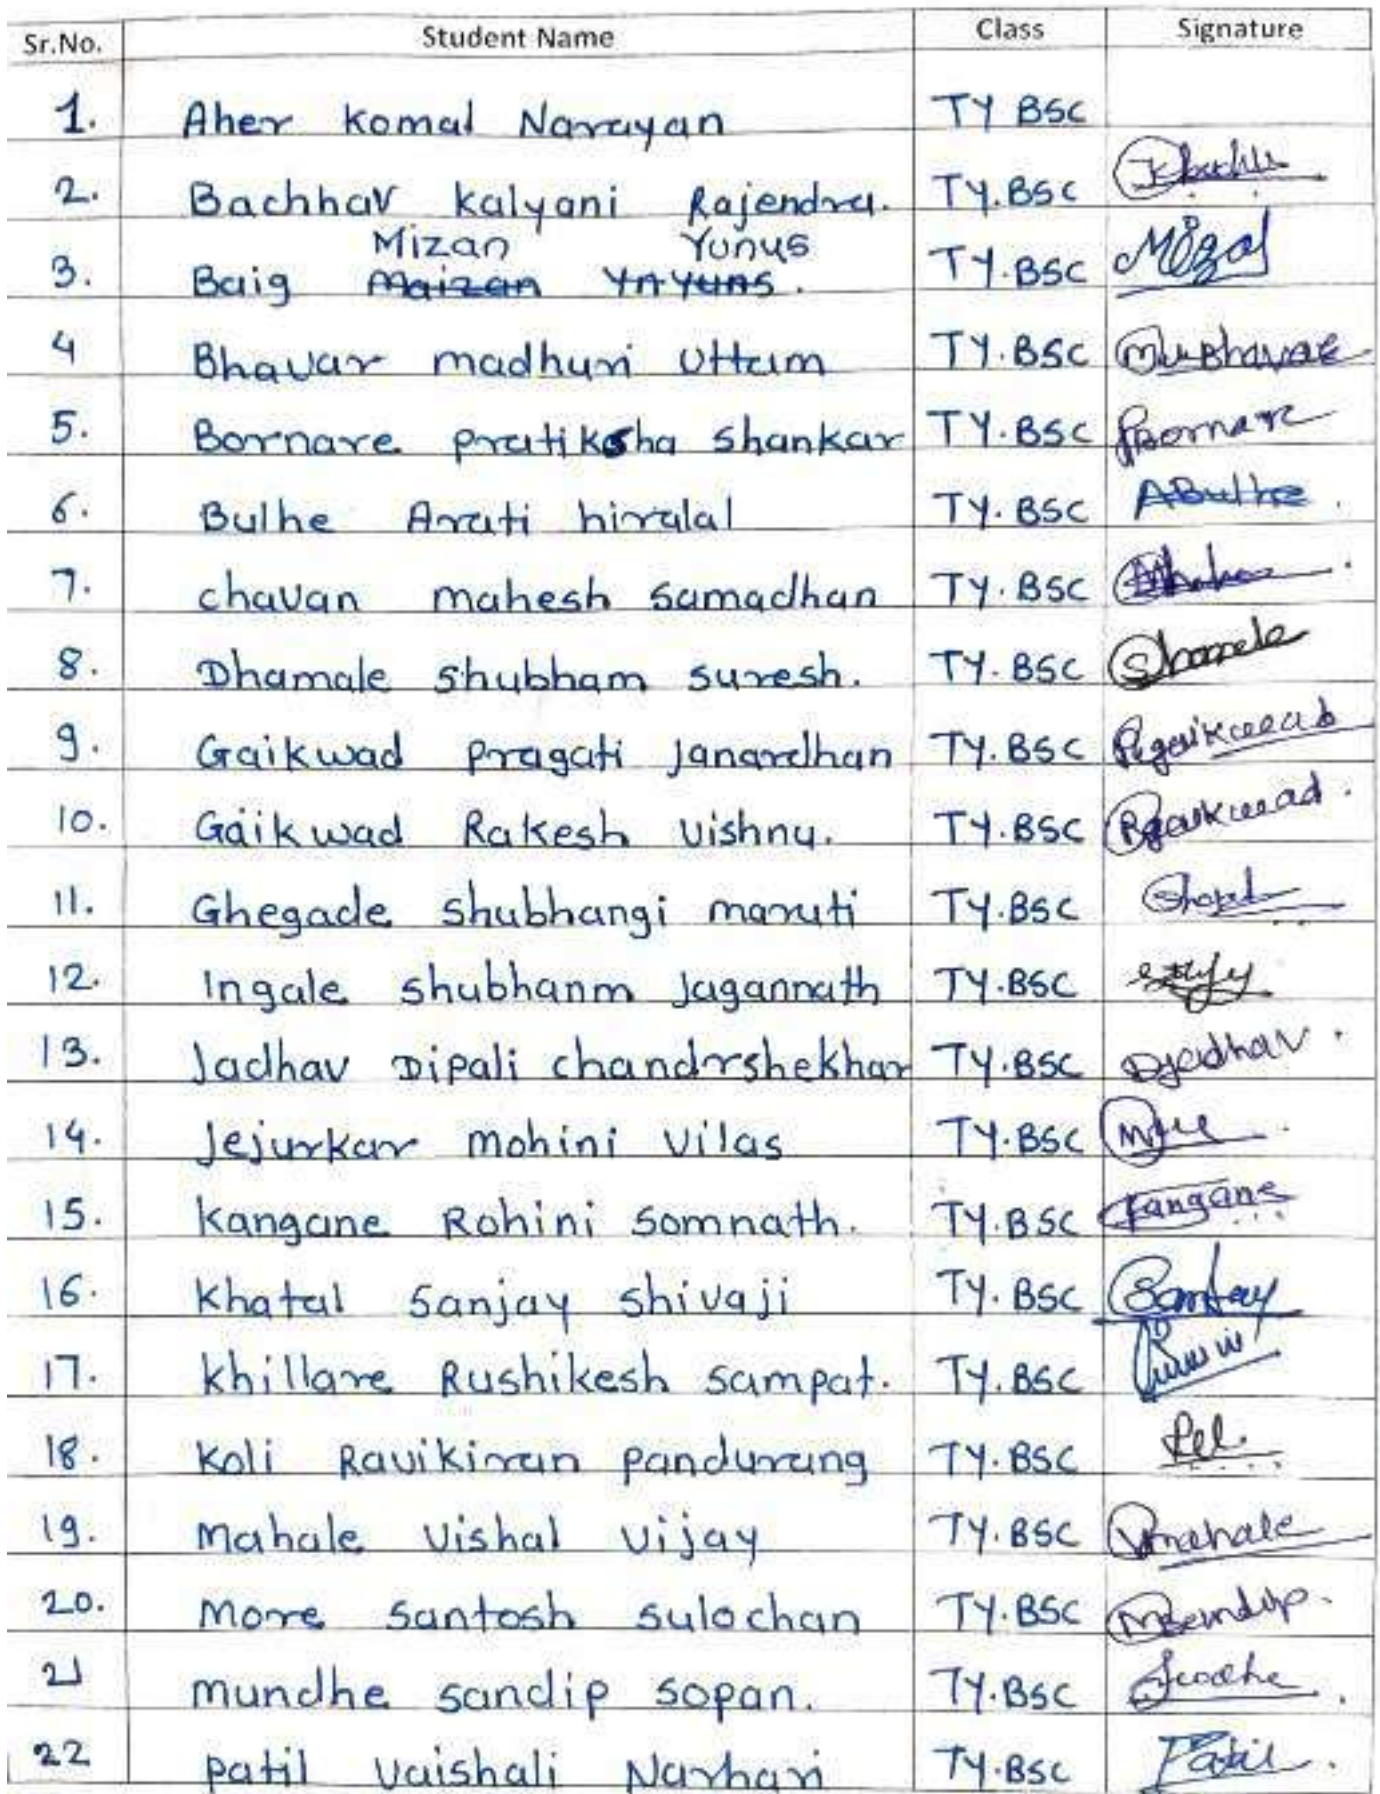 Sr.No. Student Name Class Signature
1. Aher Komal Narayan TY BSC
2. Bachhav Kalyani Rajendra. TY.BSC
Mizan Yunus
3. Baig Maizan TY.BSC Mizal
4 Bhavar madhuri Uttam TY.BSC
5. Bornare pratiksha shankar TY.BSC PBornare
6. Bulhe Arati hiralal TY.BSC ABulhe
7. chavan mahesh samadhan TY.BSC
8. Dhamale shubham suresh. TY.BSC
9. Gaikwad pragati Janardhan TY.BSC Pgaikwad
10. Gaikwad Rakesh vishnu. TY.BSC Rgaikwad
11. Ghegade shubhangi maruti TY.BSC
12. Ingale shubhanm Jagannath TY.BSC
13. Jadhav Dipali chandrshekhar TY.BSC Djadhav
14. Jejurkar mohini vilas TY.BSC
15. kangane Rohini somnath. TY.BSC Kangane
16. Khatal Sanjay shivaji TY.BSC Sanjay
17. khillare Rushikesh sampat. TY.BSC
18. Koli Ravikiran pandurang TY.BSC
19. Mahale vishal vijay TY.BSC Vmahale
20. More santosh sulochan TY.BSC
21 mundhe sandip sopan. TY.BSC
22 patil vaishali Narhari TY.BSC Patil